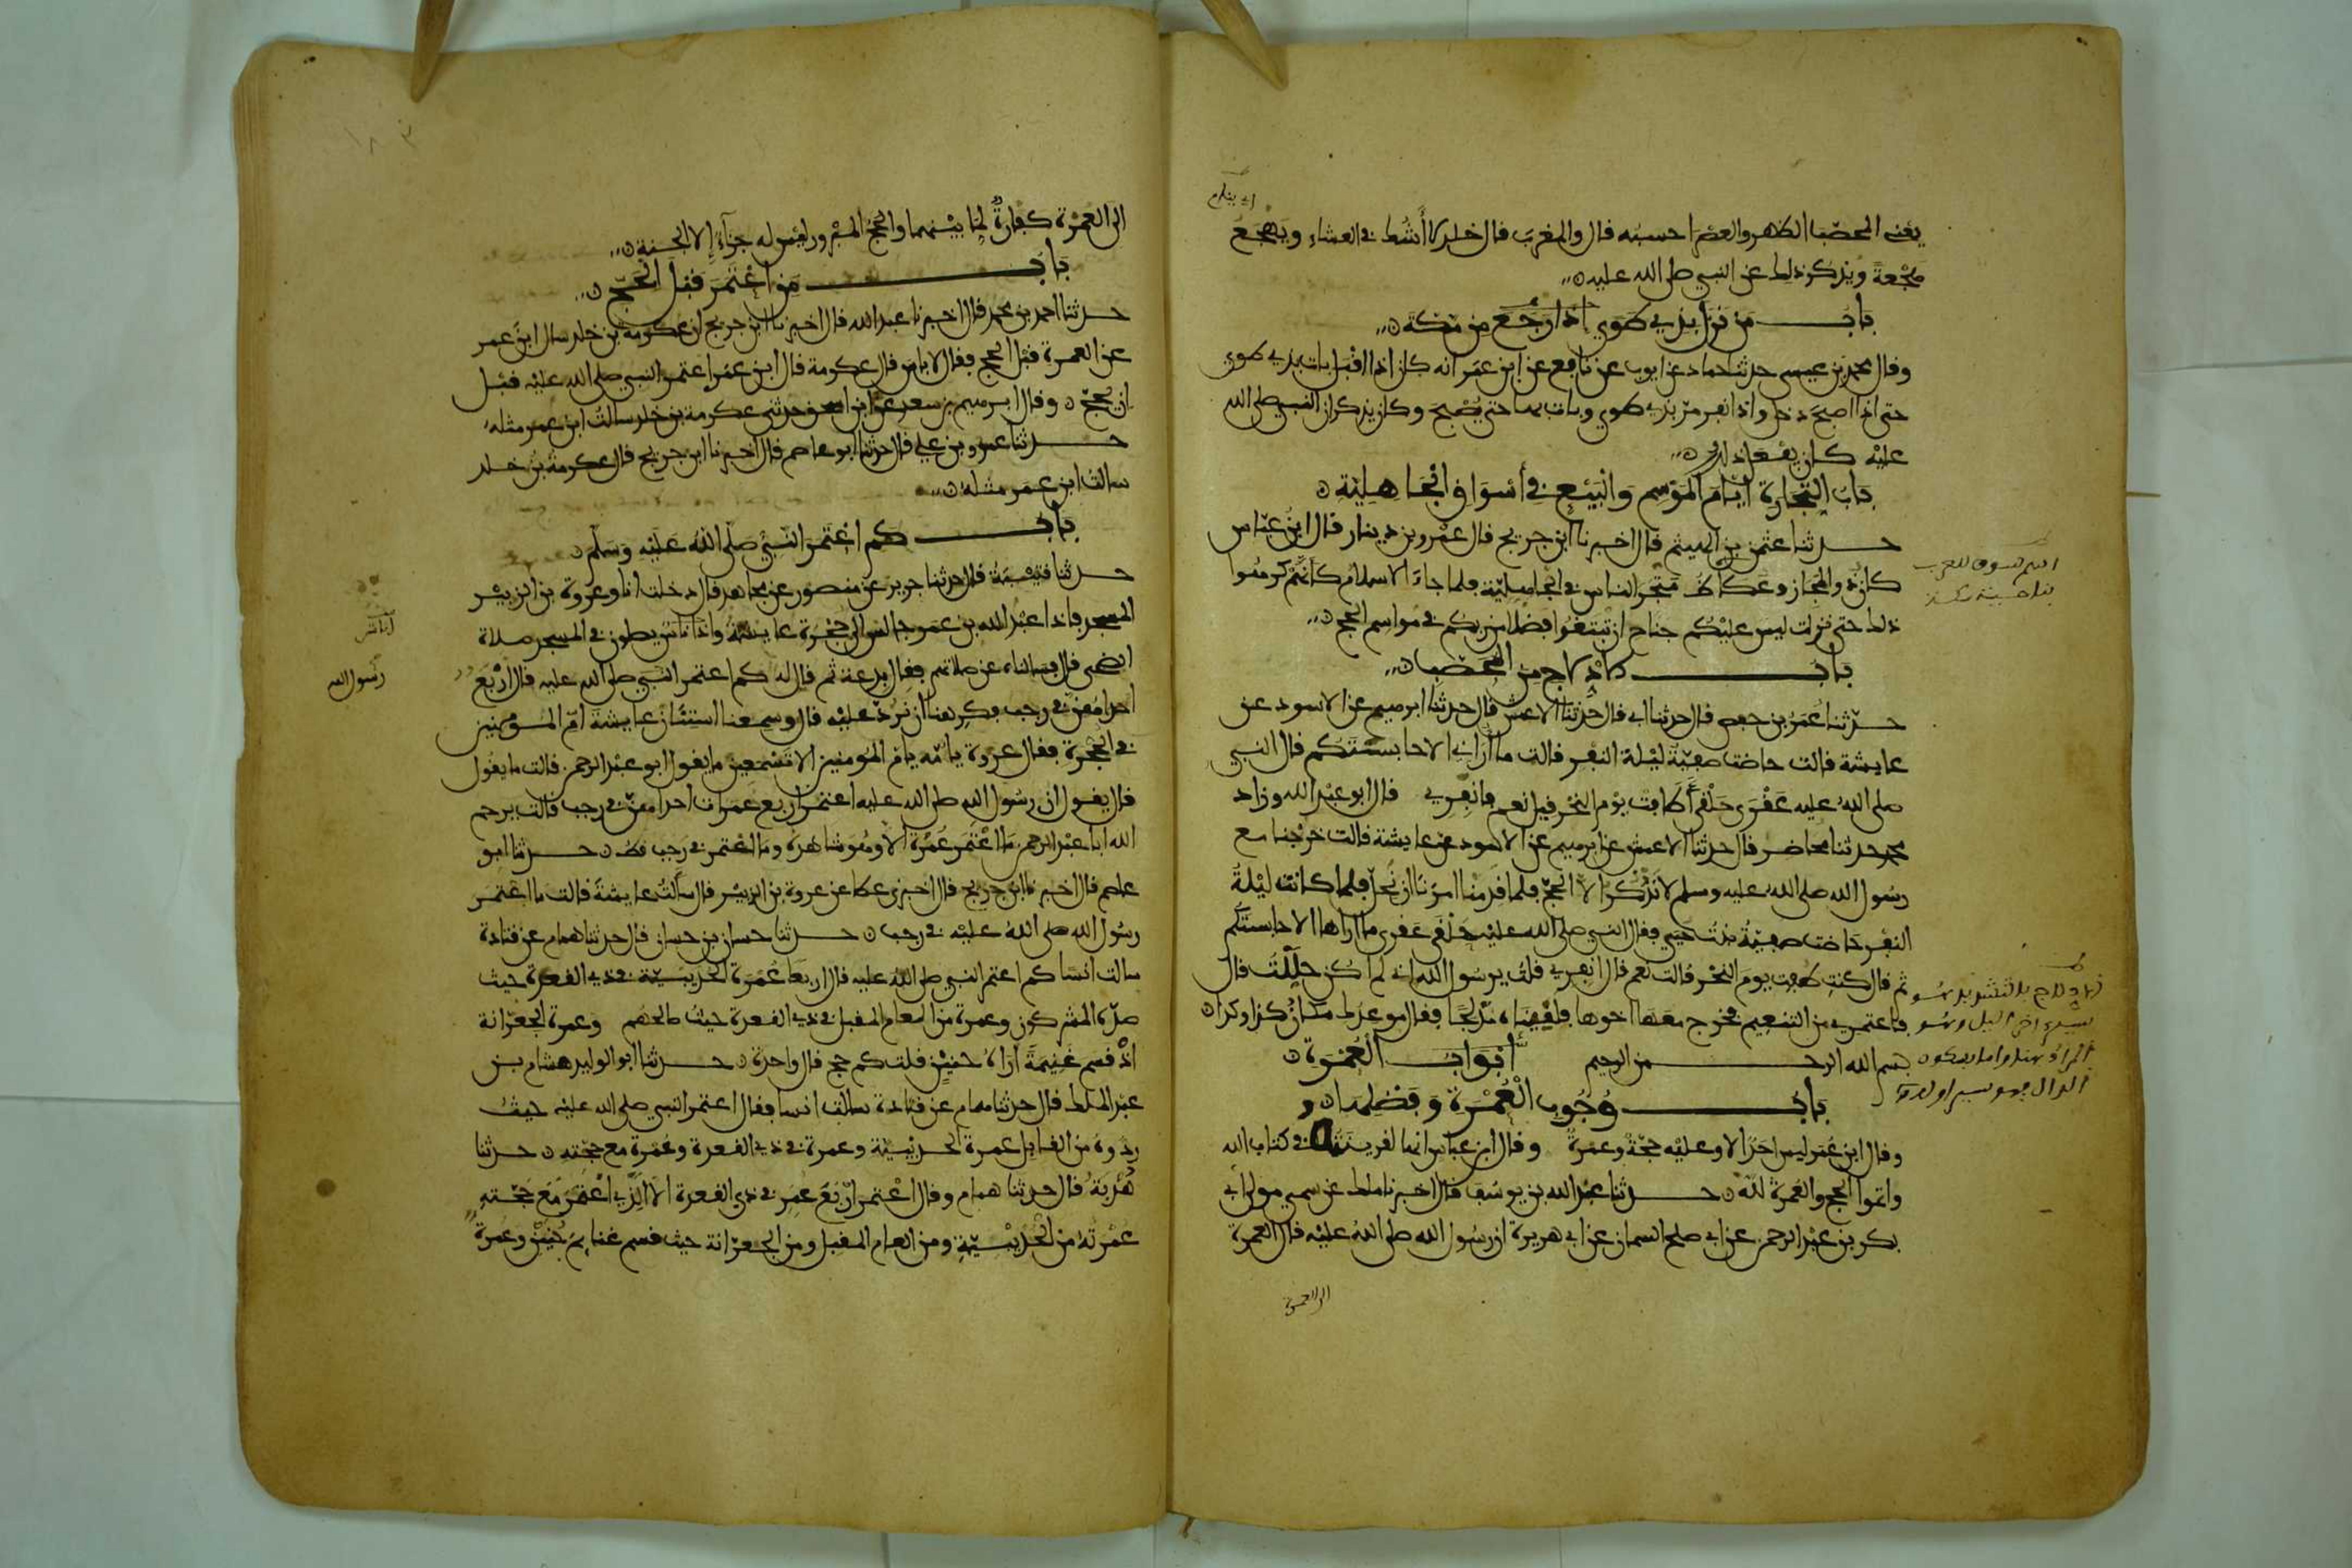 يعني المحصب الظهر والعصر احسبه قال والمغرب قال خلد لا أشك في العشاء ويهجع
هجعة ويذكر ذلك عن النبي صلى الله عليه
باب من نزل بذي طوى إذا رجع من مكة
وقال محمد بن عيسى حدثنا حماد عن ايوب عن نافع عن ابن عمر انه كان اذا اقبل بات بذي طوى
حتى اذا اصبح دخل واذا نفر مر بذي طوى وبات بها حتى يصبح وكان يذكر ان النبي صلى الله
عليه كان يفعل ذلك
باب التجارة أيام الموسم والبيع في أسواق الجاهلية
حدثنا عثمن بن الهيثم قال اخبرنا ابن جريج قال عمرو بن دينار قال ابن عباس
كان ذو المجاز وعكاظ متجر الناس في الجاهلية فلما جاء الاسلام كأنهم كرهوا
ذلك حتى نزلت ليس عليكم جناح ان تبتغوا فضلا من ربكم في مواسم الحج
باب الادلاج من المحصب
حدثنا عمر بن حفص قال حدثنا ابي قال حدثنا الاعمش قال حدثنا ابرهيم عن الاسود عن
عايشة قالت حاضت صفية ليلة النفر فقالت ما أراني الا حابستكم قال النبي
صلى الله عليه عقرى حلقى أطافت يوم النحر قيل نعم قال فانفري قال ابو عبد الله وزاد
محمد حدثنا محاضر قال حدثنا الاعمش عن ابرهيم عن الاسود عن عايشة قالت خرجنا مع
رسول الله صلى الله عليه وسلم لا نذكر الا الحج فلما قدمنا امرنا ان نحل فلما كانت ليلة
النفر حاضت صفية بنت حيي فقال النبي صلى الله عليه حلقى عقرى ما اراها الا حابستكم
ثم قال كنت طفت يوم النحر قالت نعم قال انفري قلت يرسول الله اني لم اكن حللت قال
فاعتمري من التنعيم فخرج معها اخوها فلقيناه مدلجا فقال موعدك مكان كذا وكذا
بسم الله الرحمن الرحيم أبواب العمرة
باب وجوب العمرة وفضلها
وقال ابن عمر ليس احد الا وعليه حجة وعمرة وقال ابن عباس انها لقرينتها في كتاب الله
واتموا الحج والعمرة لله حدثنا عبد الله بن يوسف قال اخبرنا ملك عن سمي مولى ابي
بكر بن عبد الرحمن عن ابي صلح السمان عن ابي هريرة ان رسول الله صلى الله عليه قال العمرة
الى العمرة
اسم لسوق للعرب
الى العمرة كفارة لما بينهما والحج المبرور ليس له جزاء إلا الجنة
باب من اعتمر قبل الحج
حدثنا احمد بن محمد قال اخبرنا عبد الله قال اخبرنا ابن جريج ان عكرمة بن خلد سال ابن عمر
عن العمرة قبل الحج فقال لا باس قال عكرمة قال ابن عمر اعتمر النبي صلى الله عليه قبل
ان يحج وقال ابرهيم بن سعد عن ابن اسحق حدثني عكرمة بن خلد سالت ابن عمر مثله
حدثنا عمرو بن علي قال حدثنا ابو عاصم قال اخبرنا ابن جريج قال عكرمة بن خلد
سالت ابن عمر مثله
باب كم اعتمر النبي صلى الله عليه وسلم
حدثنا قتيبة قال حدثنا جرير عن منصور عن مجاهد قال دخلت انا وعروة بن الزبير
المسجد فاذا عبد الله بن عمر جالس الى حجرة عايشة واذا ناس يصلون في المسجد صلاة
الضحى قال فسالناه عن صلاتهم فقال بدعة ثم قال له كم اعتمر النبي صلى الله عليه قال أربع
احداهن في رجب فكرهنا ان نرد عليه قال وسمعنا استنان عايشة ام المومنين
في الحجرة فقال عروة يا امه يا ام المومنين الا تسمعين ما يقول ابو عبد الرحمن قالت ما يقول
قال يقول ان رسول الله صلى الله عليه اعتمر اربع عمرات احداهن في رجب قالت يرحم
الله ابا عبد الرحمن ما اعتمر عمرة الا وهو شاهده وما اعتمر في رجب قط حدثنا ابو
عاصم قال اخبرنا ابن جريج قال اخبرني عطا عن عروة بن الزبير قال سألت عايشة قالت ما اعتمر
رسول الله صلى الله عليه في رجب حدثنا حسان بن حسان قال حدثنا همام عن قتادة
سالت انسا كم اعتمر النبي صلى الله عليه قال اربعا عمرة الحديبية في ذي القعدة حيث
صده المشركون وعمرة من العام المقبل في ذي القعدة حيث صالحهم وعمرة الجعرانة
اذ قسم غنيمة أراه حنين قلت كم حج قال واحدة حدثنا ابو الوليد هشام بن
عبد الملك قال حدثنا همام عن قتادة سالت انسا فقال اعتمر النبي صلى الله عليه حيث
ردوه من القابل عمرة الحديبية وعمرة في ذي القعدة وعمرة مع حجته حدثنا
هدبة قال حدثنا همام وقال اعتمر اربع عمر في ذي القعدة الا الذي اعتمر مع حجته
عمرته من الحديبية ومن العام المقبل ومن الجعرانة حيث قسم غنايم حنين وعمرة
أناس
رسول الله